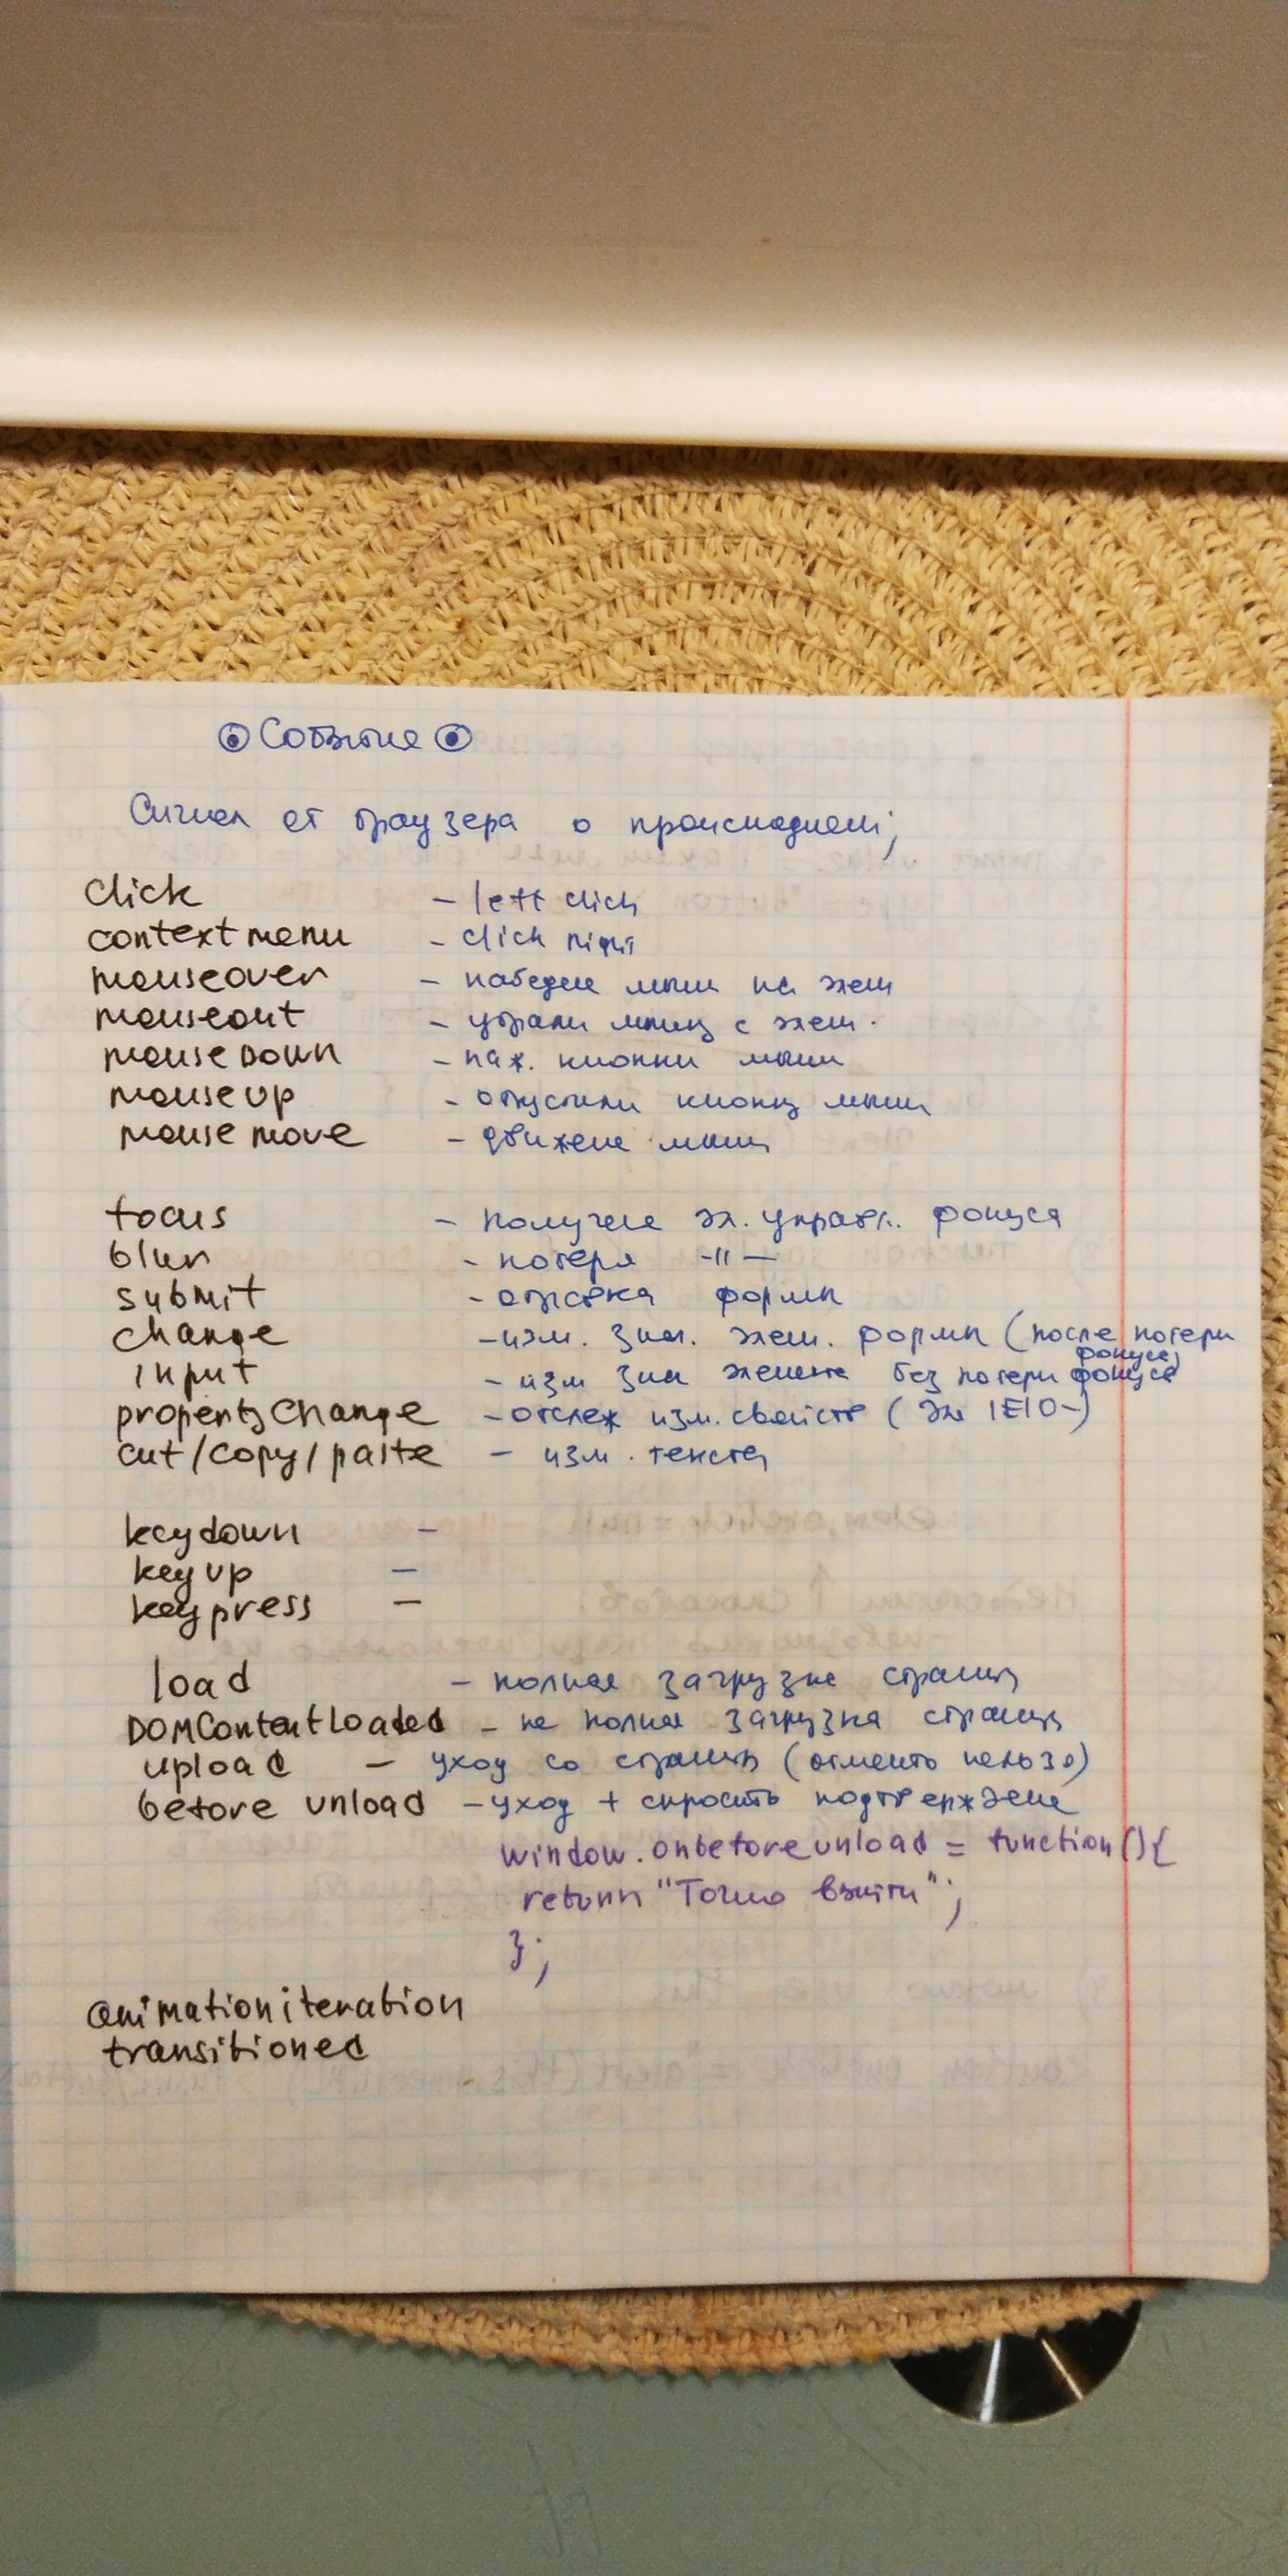 Событие
Сигнал от браузера о происходящем;
click - left click
contextmenu - click right
mouseover - наведение мыши на элем
mouseout - убрали мышц с элем.
mouse Down - наж. кнопки мыши
mouse up - отпустили кнопку мыши
mouse move - движение мыши
focus - получение эл. управл. фокуса
blur - потеря -"-
submit - отправка формы
change - изм. знач. элем. формы (после потери фокуса)
input - изм знач элемента без потери фокуса
property Change - отслеж изм. свойств ( IE10-)
cut/copy/paste - изм. текста
keydown -
key up -
key press -
load - полная загрузка страницы
DOMContentLoaded - не полная загрузка страницы
upload - уход со страницы (отменить нельзя)
before unload - уход + спросить подтверждение
window.onbeforeunload = function(){
return "Точно выйти";
};
animationiteration
transitioned